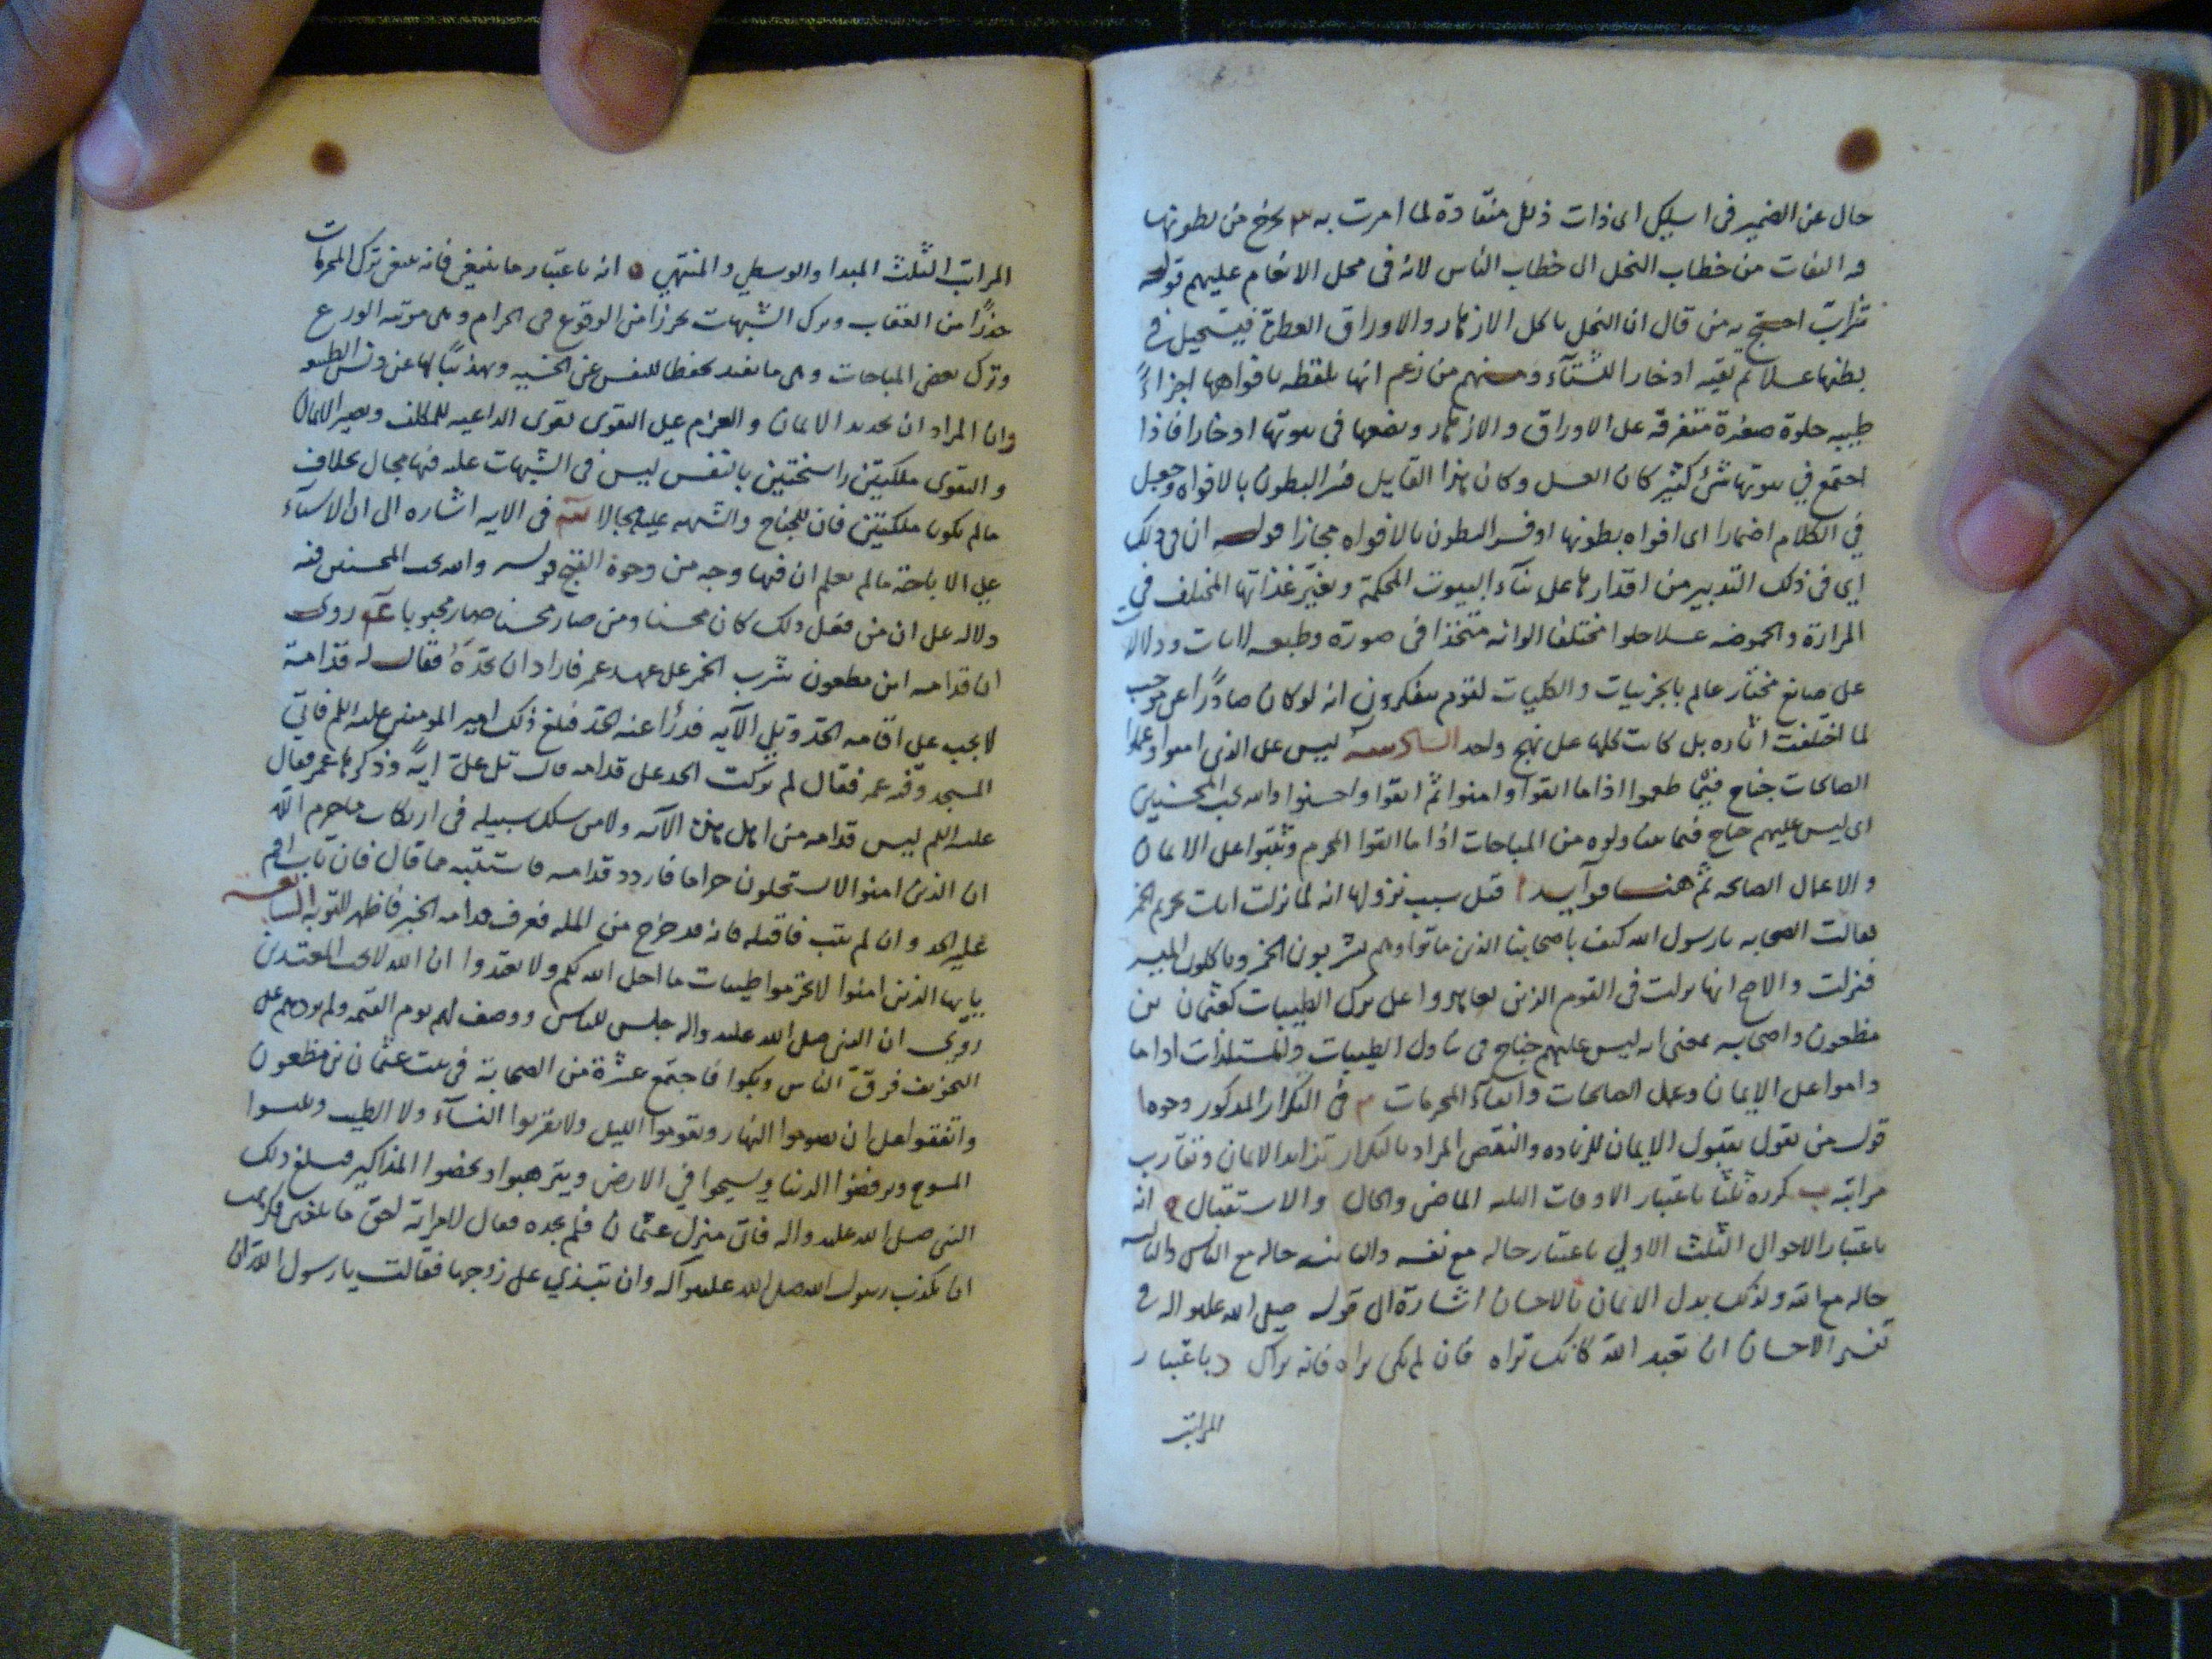 حال عن الضمير فى اسلكى اى ذات ذلل منقادة لما امرت به ٣ يخرج من بطونها
فه التفات من خطاب النحل الى خطاب الناس لانه فى محل الانعام عليهم قوله
شراب احتج به من قال ان النحل ياكل الازهار والاوراق العطرة فيستحيل فى
بطنها عسلا ثم تقيه ادخارا للشتآء ومنهم من زعم انها يلتقط بافواهها اجزاءً
طيبه حلوة صغيرة متفرقه على الاوراق والازهار ويضعها فى بيوتها ادخارا فاذا
اجتمع في بيوتها شئ كثير كان العسل وكان هذا القايل فسر البطون بالافواه وجعل
في الكلام اضمارا اى افواه بطونها او فسر البطون بالافواه مجازا قوله ان فى ذلك
اي فى ذلك التدبير من اقدارها على بنآء البيوت المحكمة وتغيّر غذائها المختلف في
المرارة والحموضه عسلا حلوا مختلفا الوانه متخذا فى صورة وطبعه لايات ودلالات
على صانع مختار عالم بالجزييات والكليات لقوم يتفكرون انه لو كان صادرًا عن موجب
لما اختلفت اثاره بل كانت كلها على نهج واحد السادسة ليس على الذين امنوا وعملوا
الصالحات جناح فيما طعموا اذا ما اتقوا وامنوا ثم اتقوا واحسنوا والله يحب المحسنين
اى ليس عليهم جناح فيما تناولوه من المباحات اذا ما اتقوا المحرم وثبتوا على الايمان
والاعمال الصالحه ثم هنا فوايد ا قيل سبب نزولها انه لما نزلت ايات تحريم الخمر
قالت الصحابه يا رسول الله كيف باصحابنا الذين ماتوا وهم يشربون الخمر وياكلون الميسر
فنزلت والاصح انها نزلت فى القوم الذين تعاهدوا على ترك الطيبات كعثمان بن
مظعون واصحابه بمعنى انه ليس عليهم جناح فى تناول الطيبات والمستلذات اذا ما
داموا على الايمان وعمل الصالحات واتقآء المحرمات ٢ فى التكرار المذكور وجوه ا
قول من يقول بقبول الايمان للزياده والنقص المراد بالتكرار تزايد الايمان وتقارب
مراتبه ب كرره ثلثا باعتبار الاوقات الثلثه الماضى والحال والاستقبال ج انه
باعتبار الاحوال الثلث الاولى باعتبار حاله مع نفسه والثانيه حاله مع الناس والثالثه
حاله مع الله ولذلك بدل الايمان بالاحسان اشارة الى قوله صلى الله عليه واله فى
تفسير الاحسان ان تعبد الله كانك تراه فان لم تكن تراه فانه يراك د باعتبار
المراتب
المراتب الثلث المبدا والوسط والمنتهى ه انه باعتبار ما ينبغى فانه ينبغى ترك المحرمات
حذرًا من العقاب وترك الشبهات تحرزا من الوقوع فى الحرام وهى مرتبه الورع
وترك بعض المباحات وهى ما يفيد تحفظا للنفس عن الخسه وتهذيبًا لها عن دنس الطبيعه
وان المراد ان تجديد الايمان والعزم على التقوى تقوى الداعيه للمكلف ويصير الايمان
والتقوى ملكتين راسختين بالنفس ليس فى الشبهات عليه فيها مجال بخلاف
ما لم يكونا ملكتين فان للجناح والشبهه عليه مجالا فى الايه اشاره الى ان الاشياء
على الاباحة ما لم يعلم ان فيها وجه من وجوه القبح قوله والله يحب المحسنين فيه
دلاله على ان من فعل ذلك كان محسنا ومن صار محسنا صار محبوبا روى
ان قدامه ابن مظعون شرب الخمر على عهد عمر فاراد ان يحدّه فقال له قدامة
لا يجب على اقامه الحد وتلى الآيه فدرأ عنه الحد فبلغ ذلك امير المومنين عليه السلم فاتى
المسجد وفيه عمر فقال لم تركت الحد على قدامه قال تلى علىّ ايةً وذكرها عمر فقال
عليه السلم ليس قدامه من اهل هذه الآيه ولا من سلك سبيله فى ارتكاب ما حرم الله
ان الذين امنوا لا يستحلون حراما فاردد قدامه فاستتبه مما قال فان تاب اقم
عليه الحد وان لم يتب فاقتله فانه قد خرج من المله فعرف قدامه الخبر فاظهر التوبه السابعه
يايها الذين امنوا لا تحرموا طيبات ما احل الله لكم ولا تعتدوا ان الله لا يحب المعتدين
روى ان النبى صلى الله عليه واله جلس للناس ووصف لهم يوم القيمه ولم يزدهم على
التخويف فرقّ الناس وبكوا فاجتمع عشرة من الصحابة فى بيت عثمان بن مظعون
واتفقوا على ان يصوموا النهار ويقوموا الليل ولا يقربوا النسآء ولا الطيب ويلبسوا
المسوح ويرفضوا الدنيا ويسيحوا في الارض ويترهبوا ويخصوا المذاكير فبلغ ذلك
النبى صلى الله عليه واله فاتى منزل عثمان فلم يجده فقال لامراته احق ما بلغنى فكرهت
ان تكذب رسول الله صلى الله عليه وآله وان تبتدي على زوجها فقالت يا رسول الله ان